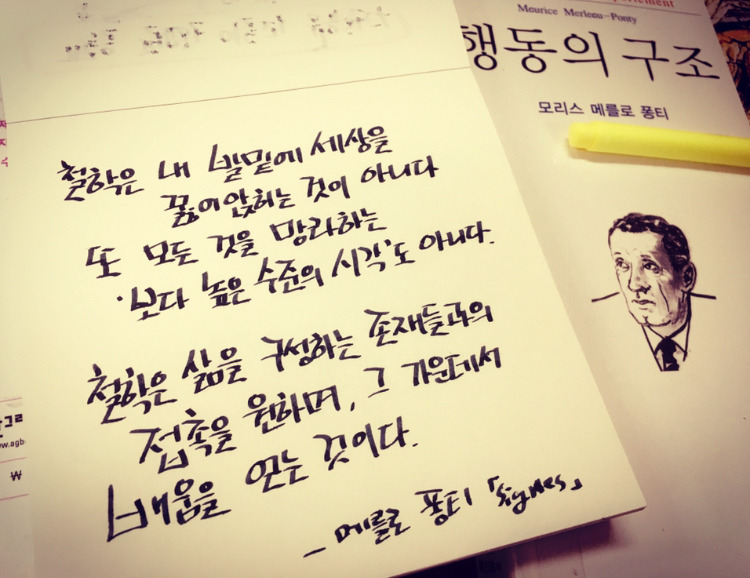 Meurice Merleau-Ponty
행동의 구조
모리스 메를로 퐁티
철학은 내 발밑에 세상을
꿇어앉히는 것이 아니다
또 모든 것을 망라하는
'보다 높은 수준의 시각'도 아니다.
철학은 삶을 구성하는 존재들과의
접촉을 원하며, 그 가운데서
배움을 얻는 것이다.
- 메를로 퐁티 「Signes」
₩